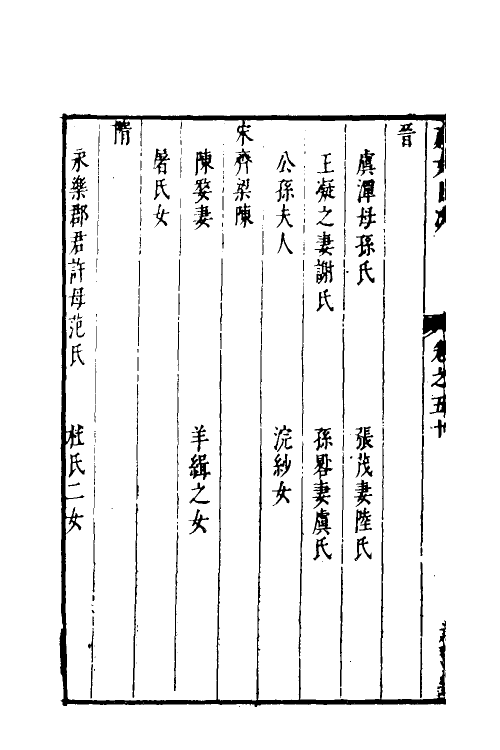 卷之五十
晉
虞潭母孫氏 張茂妻陸氏
王凝之妻謝氏 孫畧妻虞氏
公孫夫人 浣紗女
宋齊梁陳
陳婺妻 羊緝之女
屠氏女
隋
永樂郡君許母范氏 杜氏二女